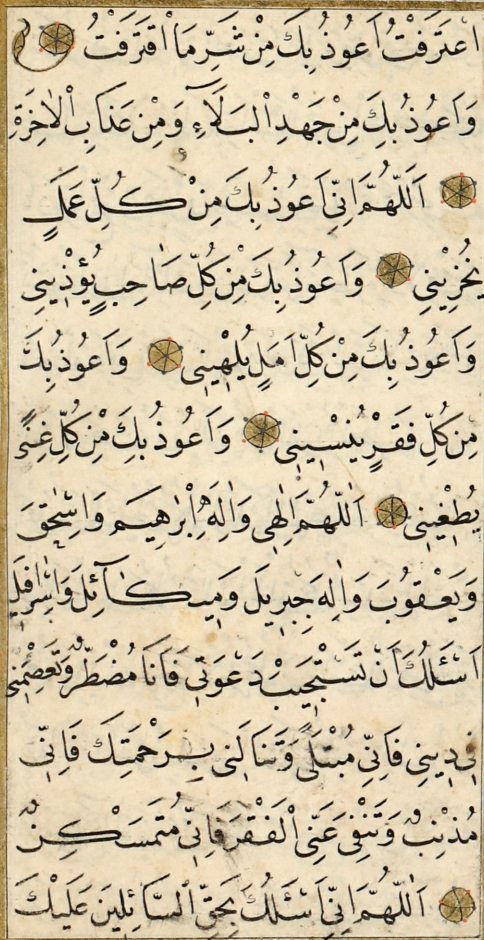 اَعْتَرَفْتُ اَعُوذُ بِكَ مِنْ شَرِّ مَا اقْتَرَفْتُ
وَاَعُوذُ بِكَ مِنْ جَهْدِ الْبَلَآءِ وَمِنْ عَذَابِ الْاٰخِرَةِ
اَللّٰهُمَّ اِنِّي اَعُوذُ بِكَ مِنْ كُلِّ عَمَلٍ
يُخْزِيْنِي وَاَعُوذُ بِكَ مِنْ كُلِّ صَاحِبٍ يُؤْذِيْنِي
وَاَعُوذُ بِكَ مِنْ كُلِّ اَمَلٍ يُلْهِيْنِي وَاَعُوذُ بِكَ
مِنْ كُلِّ فَقْرٍ يُنْسِيْنِي وَاَعُوذُ بِكَ مِنْ كُلِّ غِنًى
يُطْغِيْنِي اَللّٰهُمَّ اِلٰهِي وَاِلٰهَ اِبْرٰهِيْمَ وَاِسْحٰقَ
وَيَعْقُوبَ وَاِلٰهَ جِبْرِيلَ وَمِيكَآئِلَ وَاِسْرَافِيلَ
اَسْئَلُكَ اَنْ تَسْتَجِيْبَ دَعْوَتِي فَاَنَا مُضْطَرٌّ وَتَعْصِمَنِي
فِي دِينِي فَاِنِّي مُبْتَلًى وَتَنَالَنِي بِرَحْمَتِكَ فَاِنِّي
مُذْنِبٌ وَتَنْفِيَ عَنِّي الْفَقْرَ فَاِنِّي مُتَمَسْكِنٌ
اَللّٰهُمَّ اِنِّي اَسْئَلُكَ بِحَقِّ السَّآئِلِينَ عَلَيْكَ